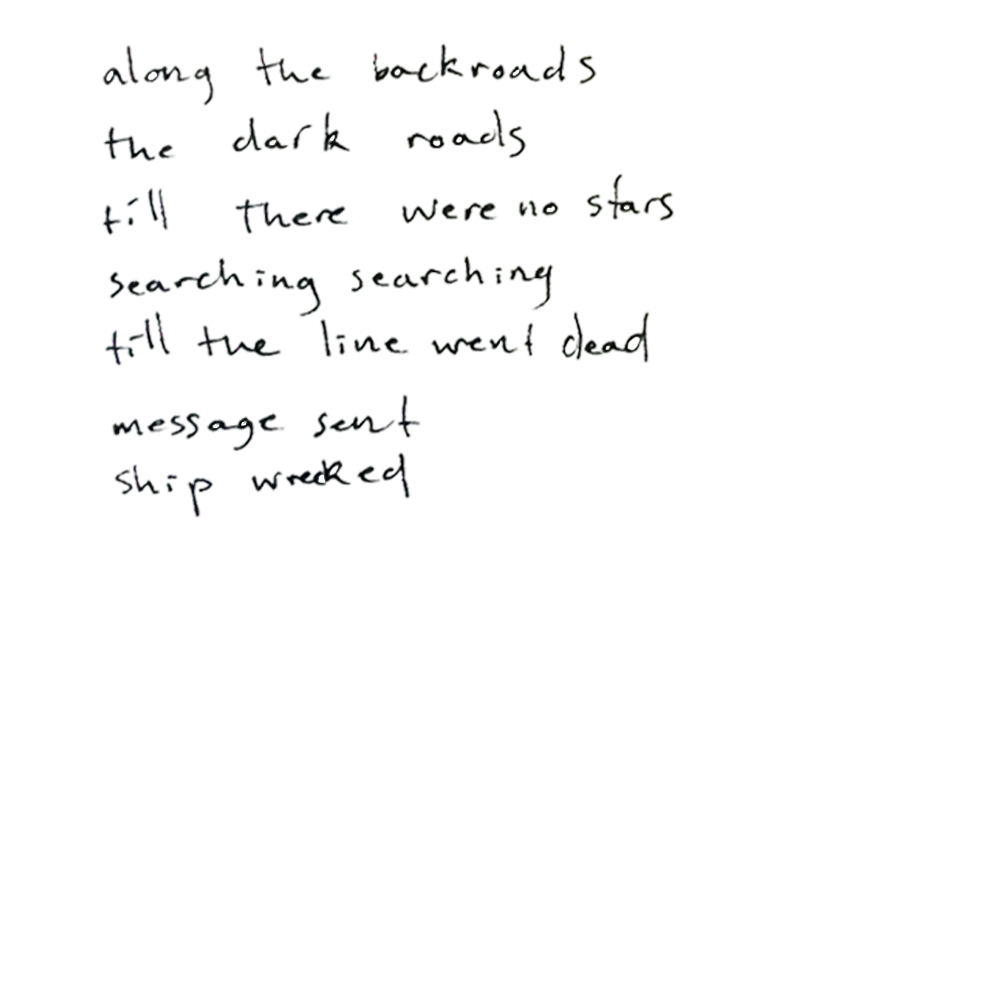 along the backroads
the dark roads
till there were no stars
searching searching
till the line went dead
message sent
ship wrecked